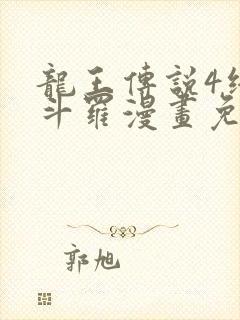 龍王傳說4終
斗羅漫畫免
郭旭